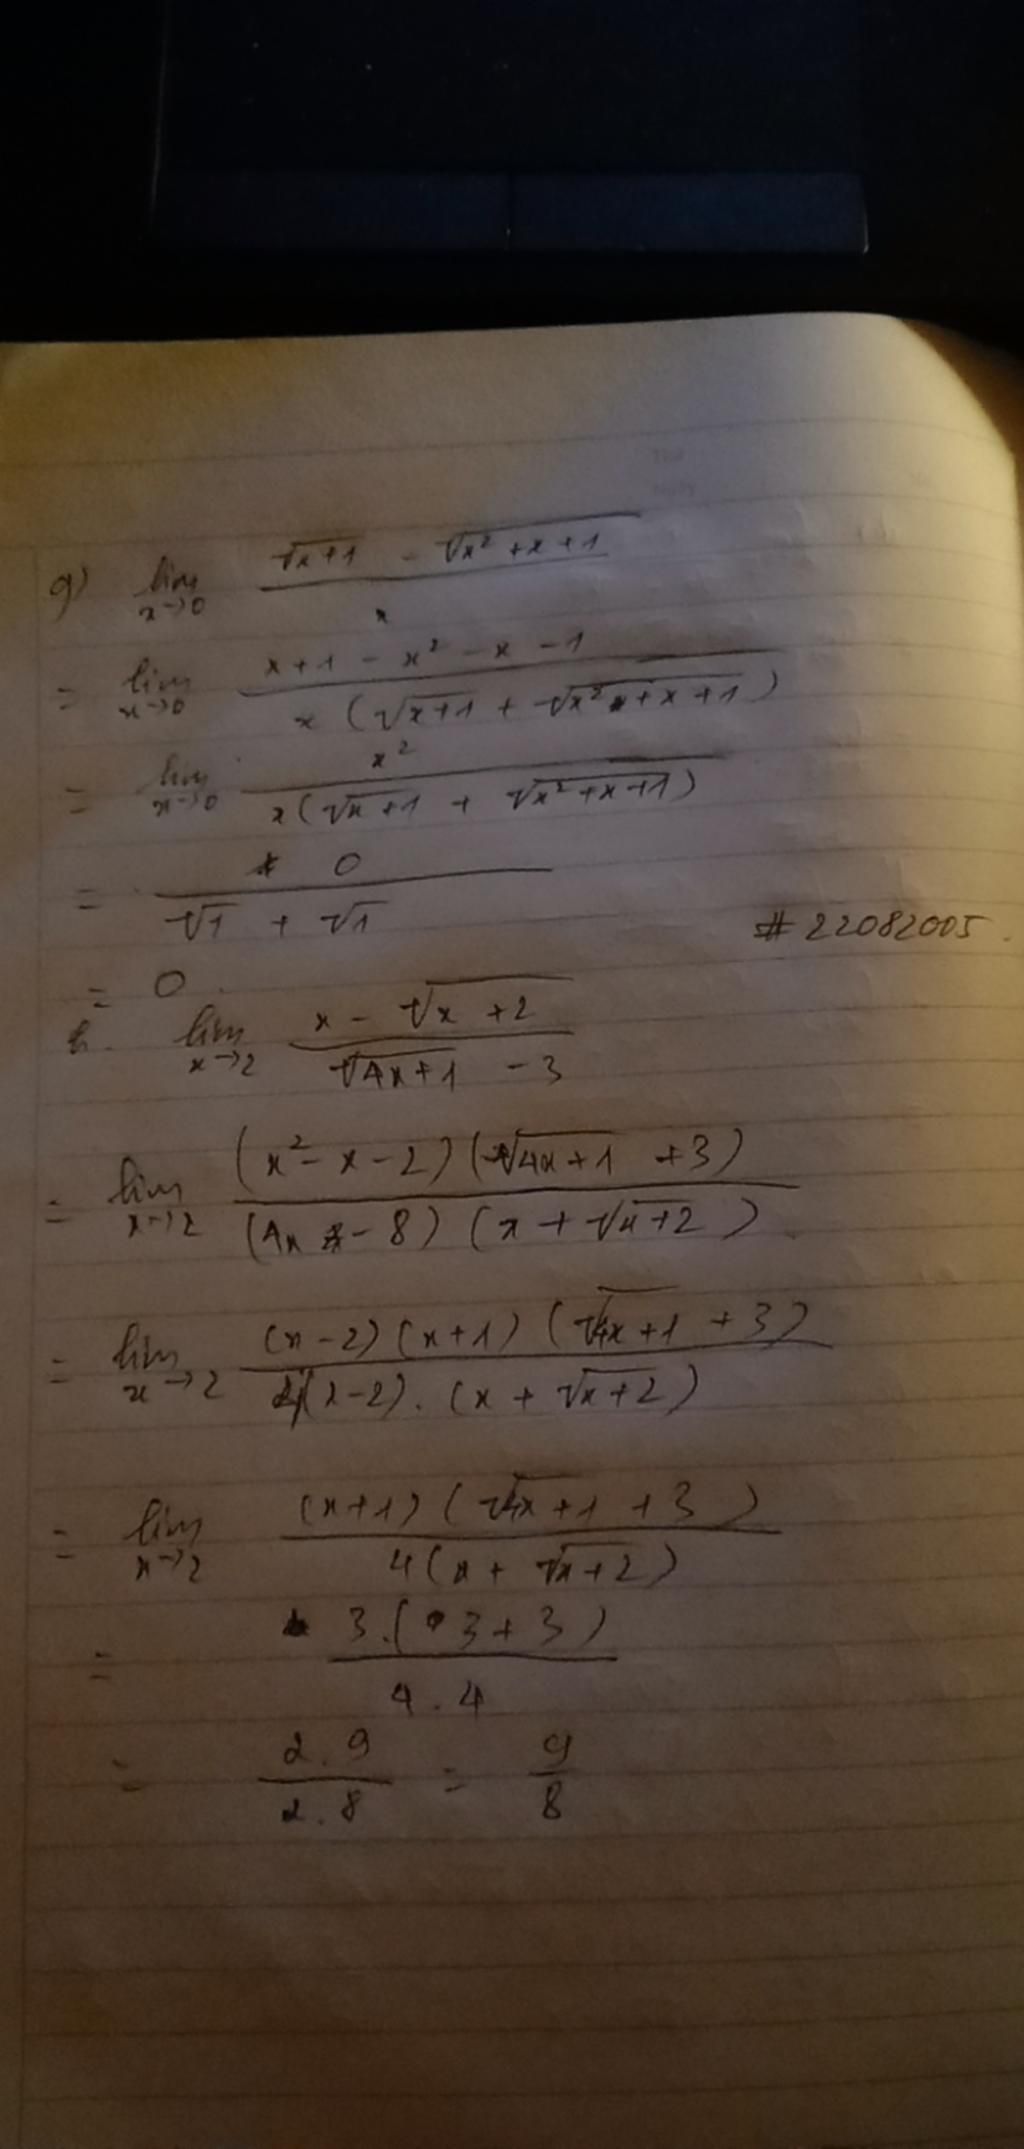 g) lim x→0 (√(x+1) - √(x²+x+1)) / x
= lim x→0 (x+1-x²-x-1) / (x(√(x+1) + √(x²+x+1)))
= lim x→0 x² / (x(√(x+1) + √(x²+x+1)))
= 0 / (√1 + √1)
# 22082005.
= 0.
h. lim x→2 (x - √(x+2)) / (√(4x+1) - 3)
= lim x→2 ((x²-x-2)(√(4x+1) + 3)) / ((4x-8)(x+√(x+2)))
= lim x→2 ((x-2)(x+1)(√(4x+1) + 3)) / (4(x-2).(x+√(x+2)))
= lim x→2 ((x+1)(√(4x+1) + 3)) / (4(x+√(x+2)))
= 3.(3+3) / 4.4
= 2.9 / 2.8 = 9/8